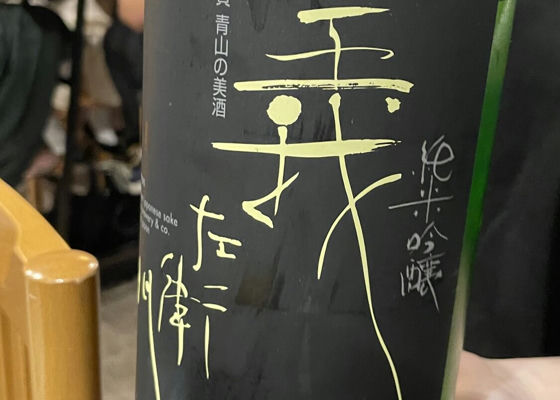 青山の美酒
義
左衛門
純米吟醸
sake
& co.